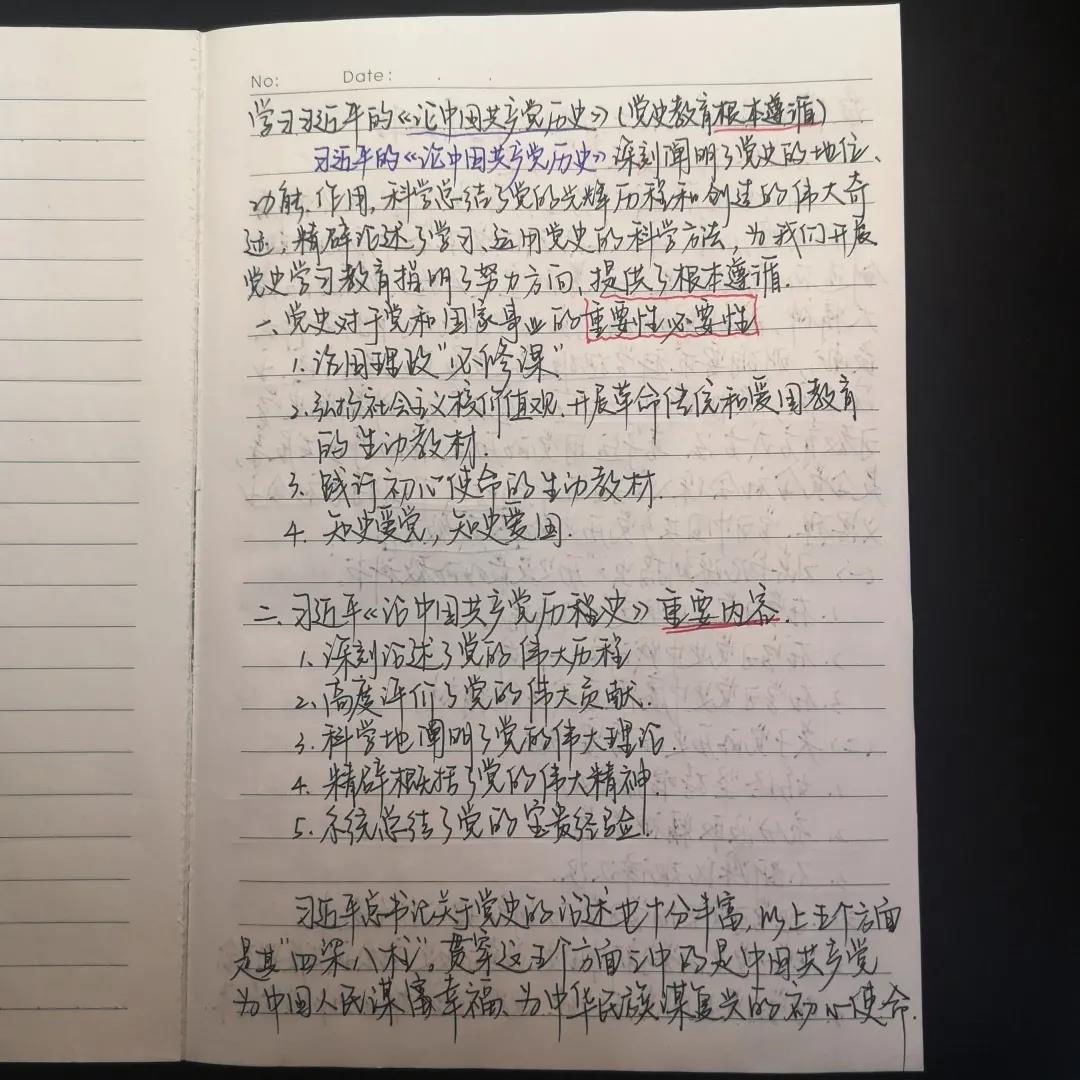 No: Date: . .
学习习近平的《论中国共产党历史》(党史教育根本遵循)
习近平的《论中国共产党历史》深刻阐明了党史的地位、
功能、作用,科学总结了党的光辉历程和创造的伟大奇
迹,精辟论述了学习、运用党史的科学方法,为我们开展
党史学习教育指明了努力方向,提供了根本遵循.
一、党史对于党和国家事业的重要性必要性
1.治国理政"必修课"
2.弘扬社会主义核价值观、开展革命传统和爱国教育
的生动教材.
3.践行初心使命的生动教材.
4.知史爱党,知史爱国.
二、习近平《论中国共产党历程史》重要内容.
1.深刻论述了党的伟大历程
2.高度评价了党的伟大贡献.
3.科学地阐明了党的伟大理论.
4.精辟概括了党的伟大精神.
5.系统总结了党的宝贵经验.
习近平总书记关于党史的论述也十分丰富,以上五个方面
是其"四梁八柱"。贯穿这五个方面之中的是中国共产党
为中国人民谋幸福、为中华民族谋复兴的初心使命.